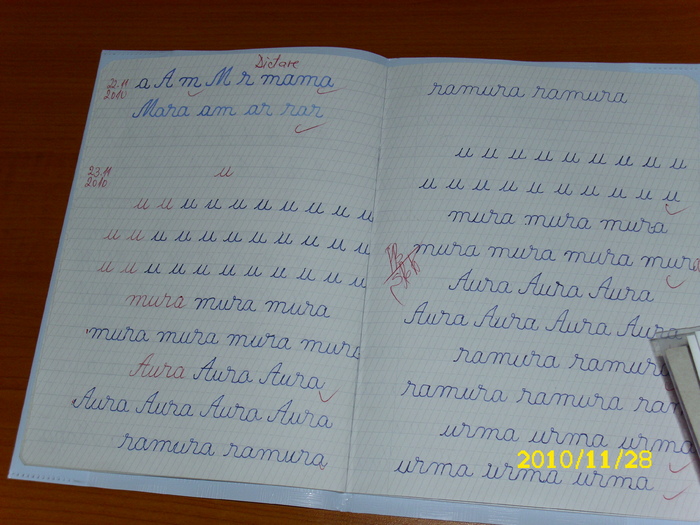 Dictare
22.11 2010 a A m M r mama
Mara am ar rar
23.11 2010 u
u u u u u u u u u u
u u u u u u u u u u u
u u u u u u u u u u u
mura mura mura
mura mura mura mura
Aura Aura Aura
Aura Aura Aura Aura
ramura ramura
ramura ramura
u u u u u u u u u
u u u u u u u u u u
mura mura mura
mura mura mura mura
Aura Aura Aura
Aura Aura Aura Aura
ramura ramura
ramura ramura ram
urma urma urma
urma urma urma
2010/11/28